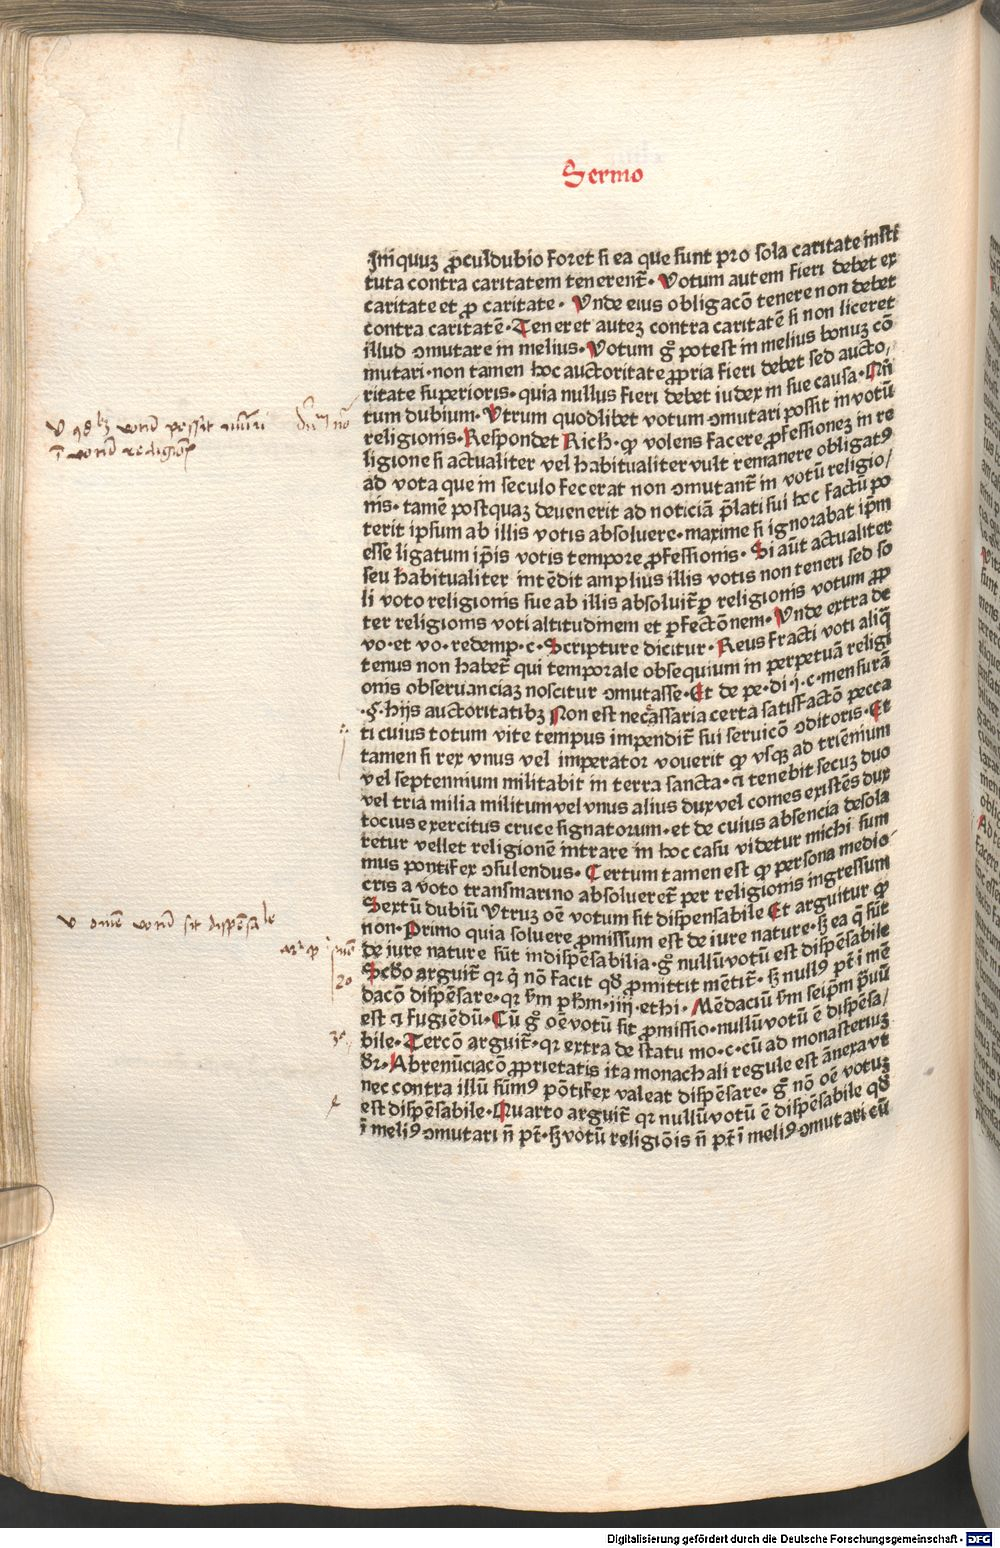 Sermo
Iniquuz ꝓculdubio foret si ea que sunt pro sola caritate insti
tuta contra caritatem tenerent̃· Votum autem fieri debet ex
caritate et ꝓ caritate· Vnde eius obligacõ tenere non debet
contra caritatẽ· Teneret autez contra caritatẽ si non liceret
illud ↄmutare in melius· Votum gͦ potest in melius bonuz cõ
mutari· non tamen hoc auctoritate ꝓpria fieri debet sed aucto/
ritate superioris· quia nullus fieri debet iudex in sue causa· Qñi
tum dubium· Vtrum quodlibet votum ↄmutari possit in votũ
religionis· Respondet Rich· ꝙ volens facere ꝓfessionez in re
ligione si actualiter vel habitualiter vult remanere obligatꝰ
ad vota que in seculo fecerat non ↄmutant̃ in votũ religio/
nis· tamẽ postquaz deuenerit ad noticiã p̃lati sui hoc factũ po
terit ipsum ab illis votis absoluere· maxime si ignorabat ip̃m
esse ligatum ip̃is votis tempore ꝓfessionis· Si aũt actualiter
seu habitualiter intẽdit amplius illis votis non teneri sed so
li voto religionis sue ab illis absoluit̃ ꝑ religionis votum ꝓp
ter religionis voti altitudinem et ꝑfectõnem· Vnde extra de
vo· et vo· redemp· c· Scripture dicitur· Reus fracti voti aliq̃
tenus non habet̃ qui temporale obsequium in perpetuã religi
onis obseruanciaz noscitur ↄmutasse· Et de pe· di· i· c· mensurã
·§· hijs auctoritatibꝫ Non est necessaria certa satisfactõ pecca
ti cuius totum vite tempus impendit̃ sui seruicõ ↄditoris· Et
tamen si rex vnus vel imperator vouerit ꝙ vsqꝫ ad trienium
vel septennium militabit in terra sancta· ⁊ tenebit secuz duo
vel tria milia militum vel vnus alius dux vel comes existẽs dux
tocius exercitus cruce signatorum· et de cuius absencia desola
retur vellet religionẽ intrare in hoc casu videtur michi sum
mus pontifex ↄsulendus· Certum tamen est ꝙ persona medio
cris a voto transmarino absolueret̃ per religionis ingressum
Sextũ dubiũ Vtruz oẽ votum sit dispensabile Et arguitur ꝙ
non· Primo quia soluere ꝓmissum est de iure nature· sꝫ ea q̃ sũt
de iure nature sũt indispẽsabilia· gͦ nullũ votũ est dispẽsabile
Scđo arguit̃ qr q̇ nõ facit qđ ꝓmittit mẽtit̃· sꝫ nullꝰ pt̃ ĩ mẽ
dacõ dispẽsare· qr ẜm pħm· iiij· ethi· Mẽdaciũ ẜm seip̃m p̃uũ
est ⁊ fugiẽdũ· Cũ gͦ oẽ votũ sit ꝓmissio· nullũ votũ ẽ dispẽsa/
bile· Tercõ arguit̃· qr extra de statu mo· c· cũ ad monasteriuz
đr· Abrenũciacõ ꝓprietatis ita monachali regule est ãnexa vt
nec contra illũ sũmꝰ põtifex valeat dispẽsare· gͦ nõ oẽ votuz
est dispẽsabile· Quarto arguit̃ qr nullũ votũ ẽ dispẽsabile qđ
ĩ meliꝰ ↄmutari ñ pt̃· sꝫ votũ religiõis ñ pt̃ ĩ meliꝰ ↄmutari cũ
Digitalisierung gefördert durch die Deutsche Forschungsgemeinschaft - DFG